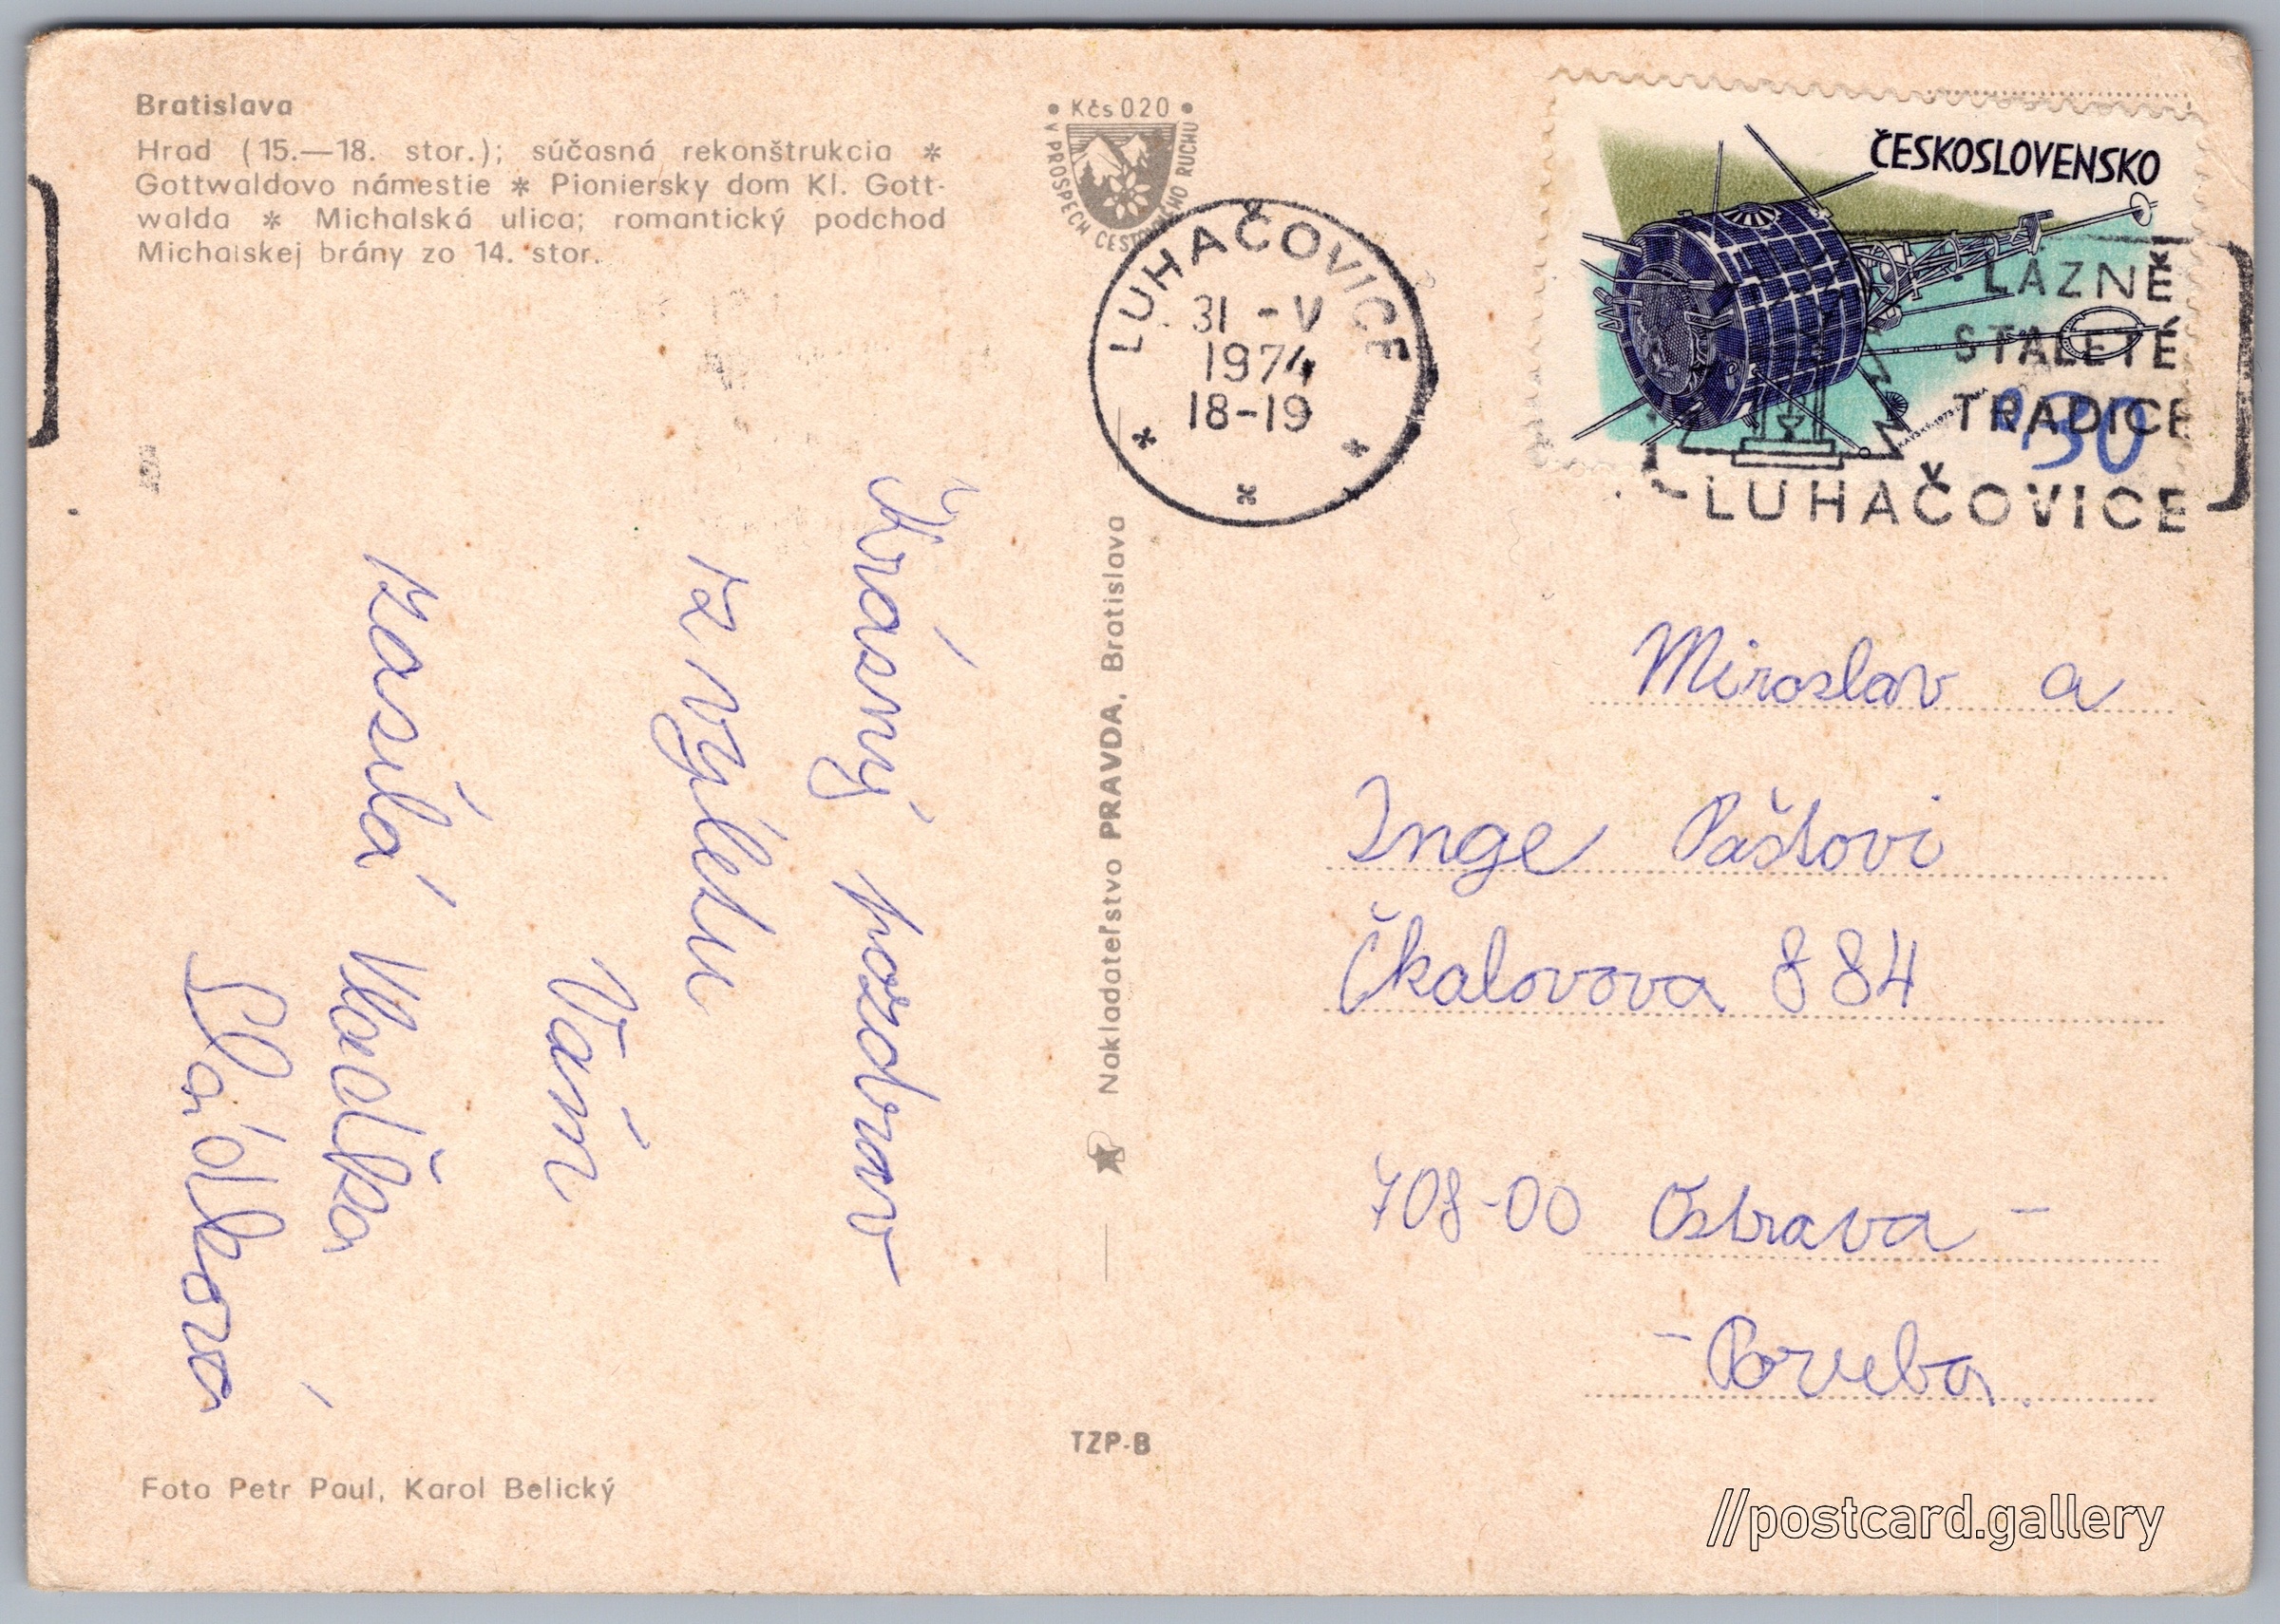 Bratislava
Hrad (15.—18. stor.); súčasná rekonštrukcia *
Gottwaldovo námestie * Pioniersky dom Kl. Gott-
walda * Michalská ulica; romantický podchod
Michalskej brány zo 14. stor.
• Kčs 020 •
V PROSPECH CESTOVNÉHO RUCHU
LUHAČOVICE
31 -V
1974
18-19
ČESKOSLOVENSKO
LÁZNĚ
STALETÉ
TRADICE
LUHAČOVICE
30
Krásný pozdrav
z výletu
Vám
zasílá Vlasťka
Sládková
Nakladateľstvo PRAVDA, Bratislava
Miroslav a
Inge Páštovi
Čkalovova 884
708-00 Ostrava -
- Poruba
TZP-B
Foto Petr Paul, Karol Belický
//postcard.gallery